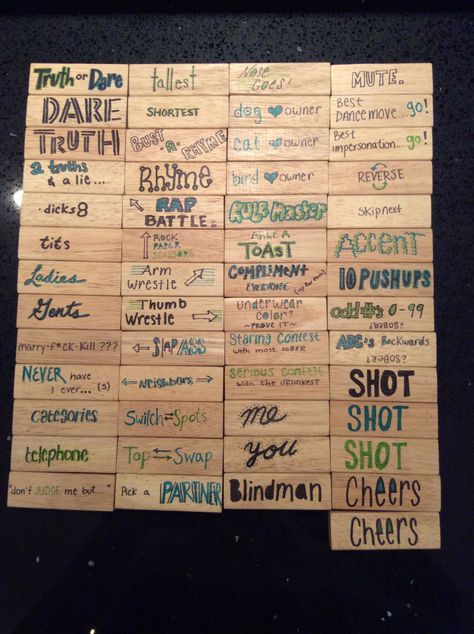 Truth or Dare
DARE
TRUTH
2 truths
& a lie...
dicks 8
tits
Ladies
Gents
marry-f*ck-Kill???
NEVER have
I ever... (5)
categories
telephone
"don't JUDGE me but..."
tallest
SHORTEST
BUST -A- RHYME
Rhyme
RAP
BATTLE
ROCK
PAPER
SCISSORS
Arm
Wrestle
Thumb
Wrestle
SLAP ASS
NEIGHBORS
Switch Spots
Top Swap
Pick a PARTNER
Nose
Goes!
dog owner
cat owner
bird owner
RULE Master
Make A
TOAST
COMPLIMENT
EVERYONE
underwear
color?
~PROVE IT~
Staring Contest
with most SOBER
Serious Contest
with the drunkest
me
you
Blindman
MUTE.
Best
DANCE move... go!
Best
impersonation... go!
REVERSE
Skip next
ACCENT
10 PUSHUPS
odd #'s 0-99
SOBER?
ABC's Backwards
SOBER?
SHOT
SHOT
SHOT
Cheers
Cheers